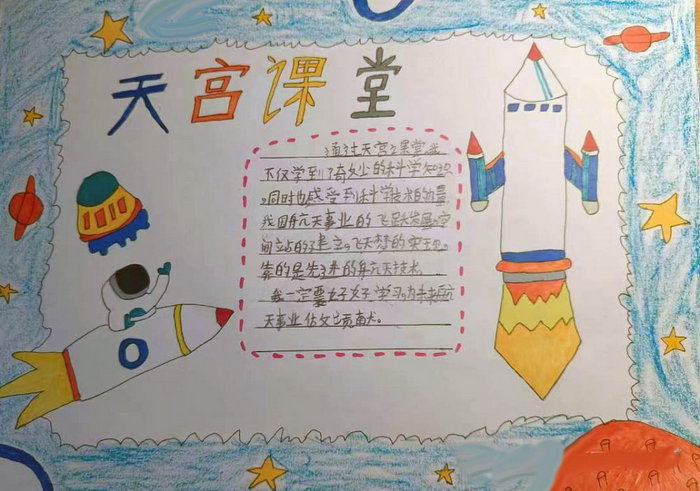 天宫课堂
通过天宫课堂,我
不仅学到了不少的科学知识
。同时也感受到科学技术的力量
我国航天事业的飞跃发展。空
间站的建立。飞天梦的实现。
靠的是先进的航天技术
我一定要好好学习。为未来航
天事业做出贡献。